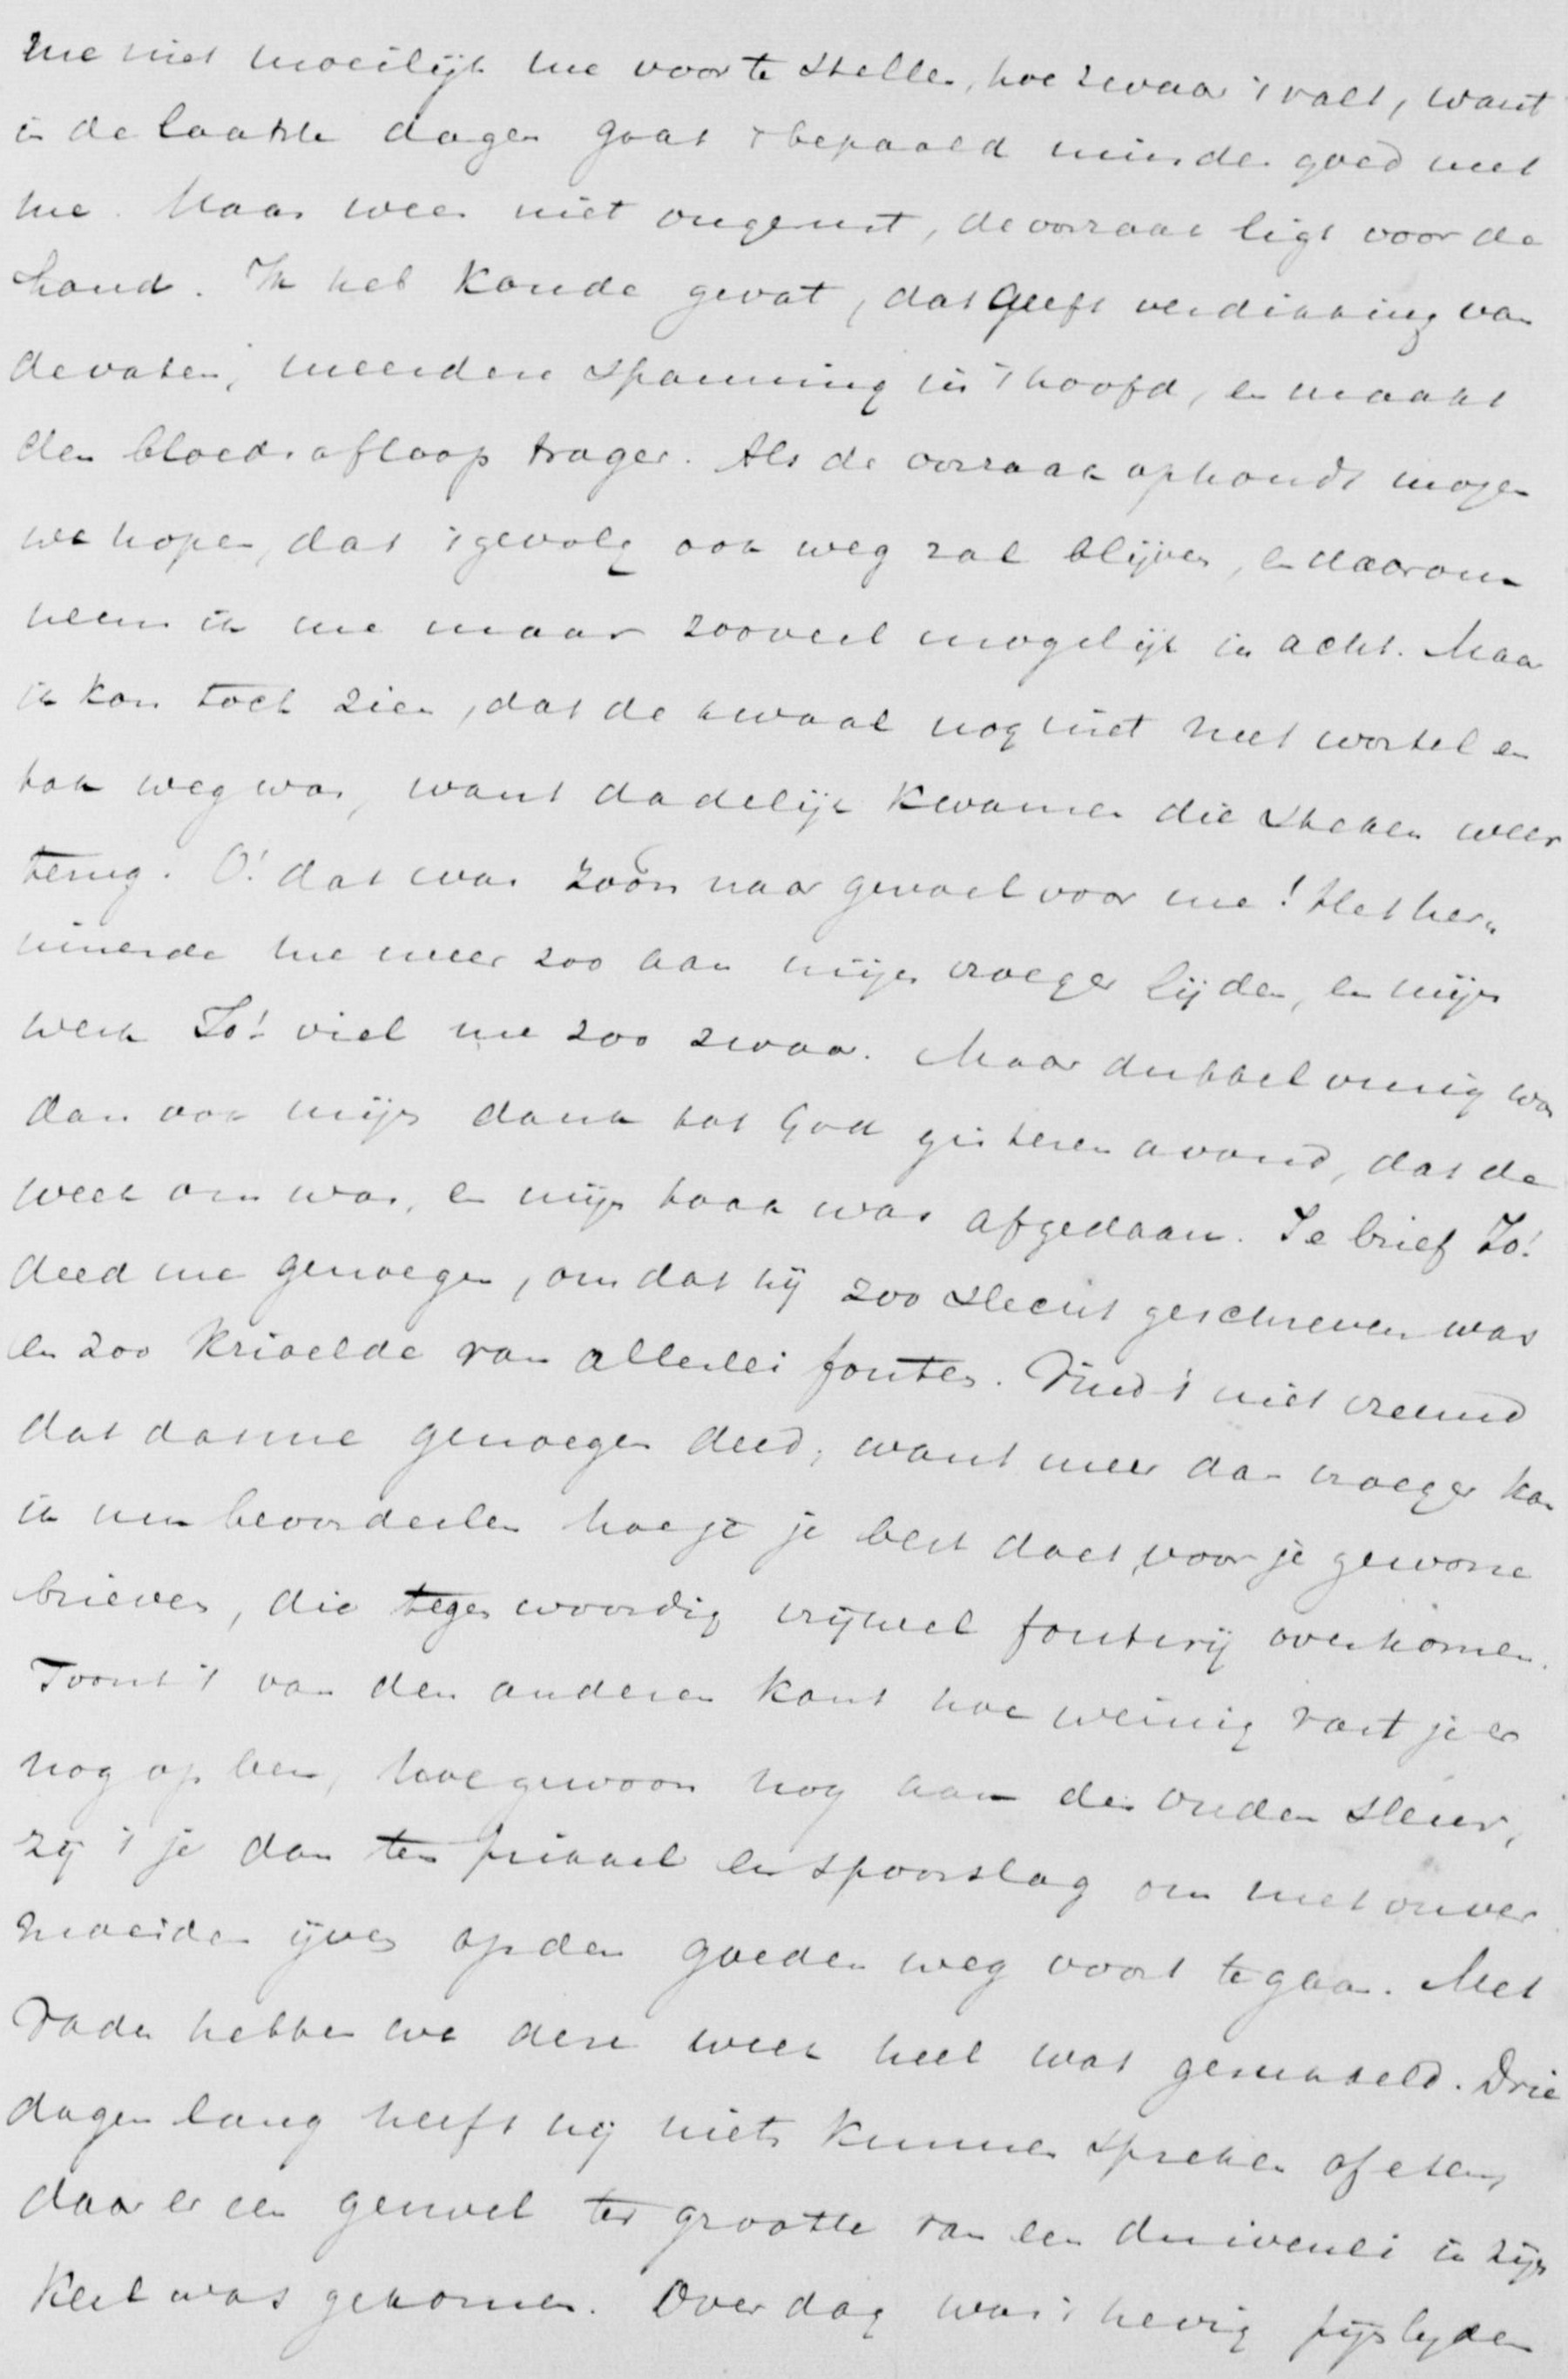 me niet moeilijk me voor te stellen, hoe zwaar 't valt, want
in de laatste dagen gaat 't bepaald minder goed met
me. Maar wees niet ongerust, de oorzaak ligt voor de
hand. Ik heb Koude gevat, dat geeft verdikking van
de vaten, meerdere spanning in 't hoofd, en maakt
den bloedsafloop trager. Als de oorzaak ophoudt mogen
we hopen, dat 't gevolg ook weg zal blijven, en daarom
neem ik me maar zooveel mogelijk in acht. Maar
ik kon toch zien, dat de kwaal nog niet met wortel en
tak weg was, want dadelijk kwamen die steken weer
terug. O! dat was zoo'n naar gevoel voor me! Het her„
innerde me weer zoo aan mijn vroeger lijden, en mijn
werk Jo! viel me zoo zwaar. Maar dubbel innig was
dan ook mijn dank tot God gisteren avond, dat de
week om was, en mijn taak was afgedaan. Je brief Jo!
deed me genoegen, omdat hij zoo slecht geschreven was
en zoo krioelde van allerlei fouten. Vind 't niet vreemd
dat dat me genoegen deed, want meer dan vroeger kan
ik nu beoordeelen hoe je je best doet, voor je gewone
brieven, die tegenwoordig vrijwel foutvrij overkomen.
Toont 't van den anderen kant hoe weinig vast je er
nog op ben, hoe gewoon nog aan den ouden sleur,
zij 't je dan ten prikkel en spoorslag om met onver
moeiden ijver op den goeden weg voort te gaan. Met
Vader hebben we deze week heel wat gesukkeld. Drie
dagen lang heeft hij niets kunnen spreken of eten,
daar er een gezwel ter grootte van een duivenei in zijn
keel was gekomen. Over dag was 't hevig pijnlijden